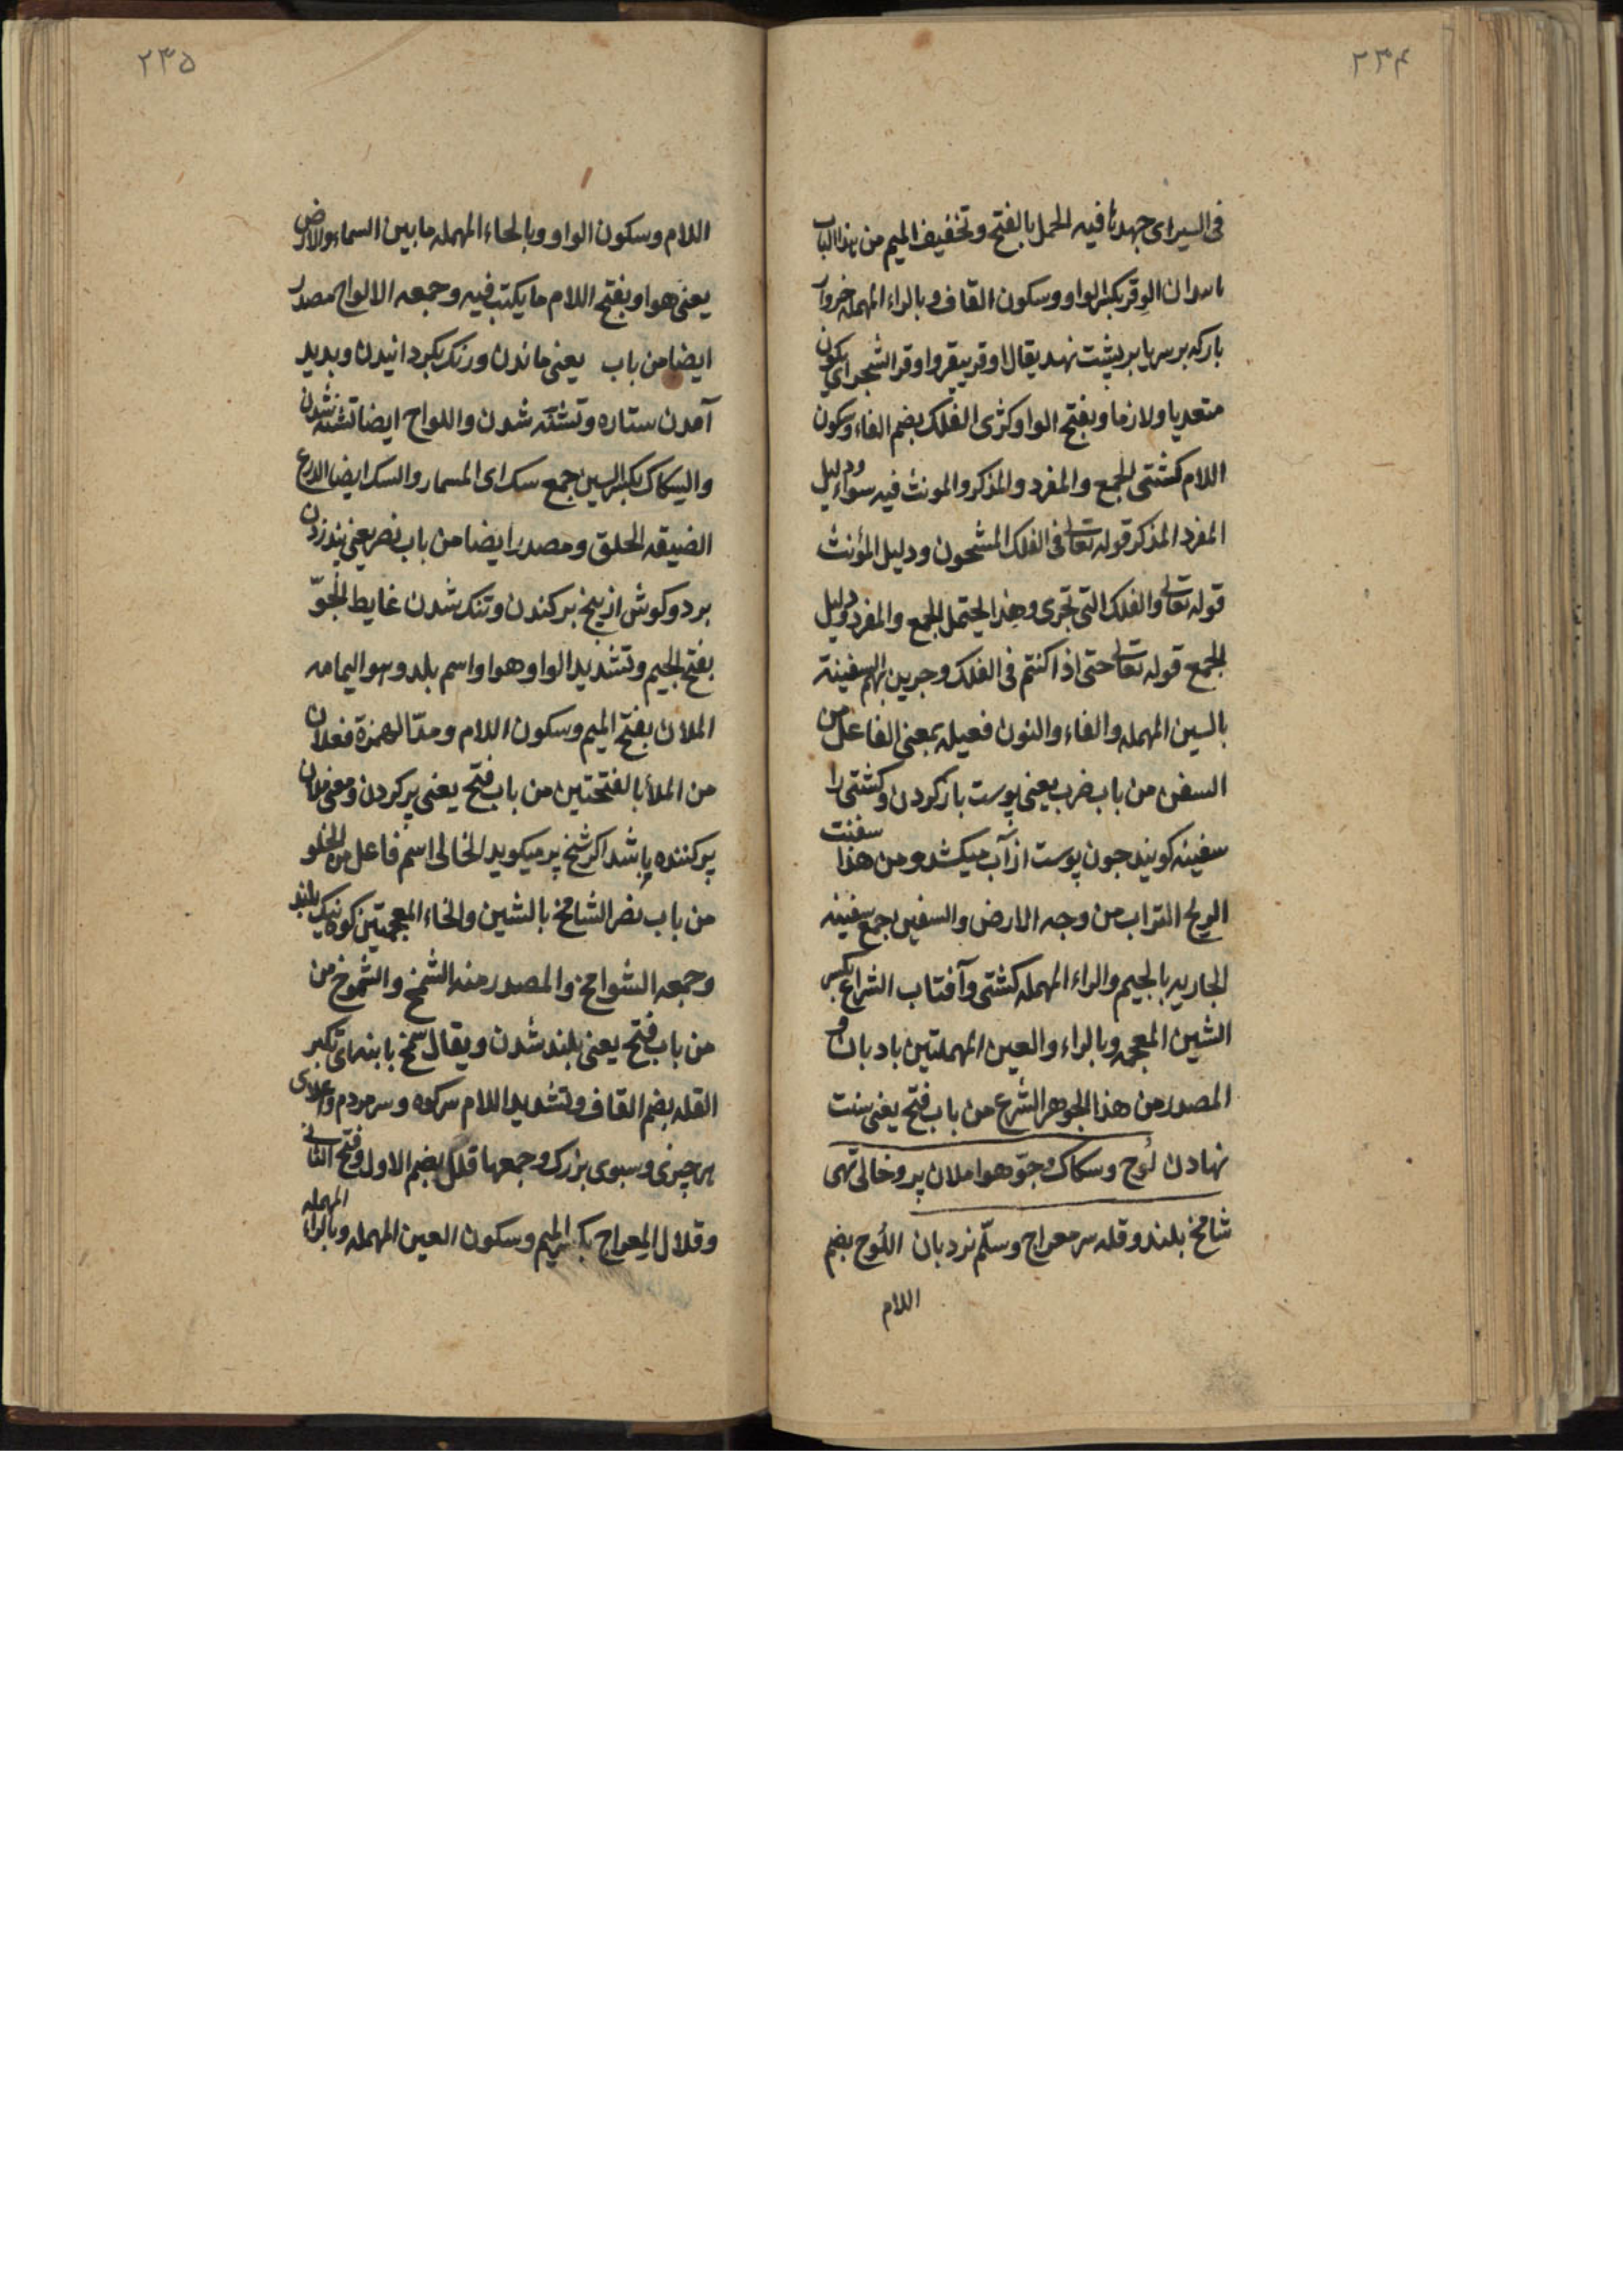 ۲۳۴
فی السیرای جهدنا فیه الحمل بالفتح وتخفیف المیم من هذا الباب
الوقر بکسر الواو وسکون القاف وبالراء المهمله خروار
بارکه برسر یا برپشت نهد یقال اوقر یوقر واوقر الشجر ای یکون
متعدیا ولازما وبفتح الواو کژی الفلک بضم الفاء وسکون
اللام کشتی الجمع والمفرد والمذکر والمونث فیه سواء ودلیل
المفرد المذکر قوله تعالی فی الفلک المشحون ودلیل المؤنث
قوله تعالی والفلک التی تجری وهذا یحتمل الجمع والمفرد ودلیل
الجمع قوله تعالی حتی اذا کنتم فی الفلک وجرین بهم السفینة
بالسین المهمله والفاء والنون فعیله بمعنی الفاعل من
السفن من باب ضرب یعنی پوست باز کردن وکشتی را
سفینه کویند جون پوست از آب میکشد ومن هذا سفنت
الریح التراب من وجه الارض والسفین جمع سفینه
الجاریه بالجیم والراء المهمله کشتی وآفتاب الشراع بکسر
الشین المعجمه وبالراء والعین المهملتین بادبان و
المصدر من هذا الجوهر الشرع من باب فتح یعنی سنت
نهادن لُوح وسکاک وجوّ هوا ملان پر وخالی تهی
شامخ بلند وقله سر معراج وسلّم نردبان اللوح بضم
اللام
۲۳۵
اللام وسکون الواو وبالحاء المهمله مابین السماء والارض
یعنی هوا وبفتح اللام ما یکتب فیه وجمعه الالواح مصدر
ایضا من باب یعنی ماندن ورنک بکردانیدن وبدید
آمدن ستاره وتشنه شدن واللواح ایضا تشنه شدن
والسکاک بکسر السین جمع سک ای المسمار والسک ایضا الدرع
الضیقه الحلق ومصدر ایضا من باب نصر یعنی بند زدن
بر در وکوش از بیخ برکندن وتنک شدن غایط الجوّ
بفتح الجیم وتشدید الواو هوا واسم بلد وهو الیمامه
الملان بفتح المیم وسکون اللام ومدّ الهمزة فعلان
من الملأ بالفتحتین من باب فتح یعنی پر کردن ومعنی ملان
پر کننده باشد اکر شیخ پر میکوید الخالی اسم فاعل من الخلو
من باب نصر الشامخ بالشین والخاء المعجمتین کوه نیک بلند
وجمعه الشوامخ والمصدر منه الشمخ والشموخ من
من باب فتح یعنی بلند شدن ویقال شمخ بانفه ای تکبر
القله بضم القاف وتشدید اللام سر کوه وسر مردم واعلای
هر چیزی وسبوی بزرک وجمعها قلل بضم الاول وفتح الثانی
وقلال المِعراج بکسر المیم وسکون العین المهمله وبالراء المهمله